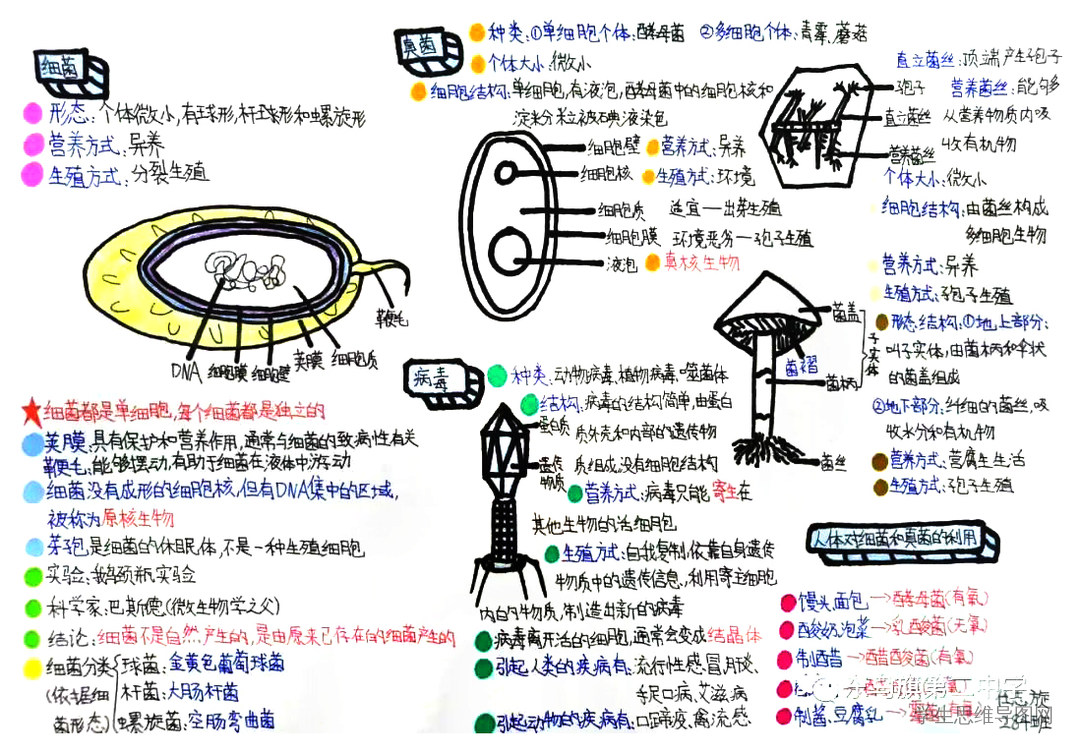 细菌
形态:个体微小,有球形,杆球形和螺旋形
营养方式:异养
生殖方式:分裂生殖
鞭毛
DNA 细胞膜 细胞壁 荚膜 细胞质
细菌都是单细胞,每个细菌都是独立的
荚膜:具有保护和营养作用,通常与细菌的致病性有关
鞭毛:能够摆动,有助于细菌在液体中游动
细菌没有成形的细胞核,但有DNA集中的区域,
被称为原核生物
芽孢是细菌的休眠体,不是一种生殖细胞
实验:鹅颈瓶实验
科学家:巴斯德(微生物学之父)
结论:细菌不是自然产生的,是由原来已存在的细菌产生的
细菌分类
(依据细
菌形态)
球菌:金黄色葡萄球菌
杆菌:大肠杆菌
螺旋菌:空肠弯曲菌
真菌
种类:①单细胞个体:酵母菌 ②多细胞个体:青霉、蘑菇
个体大小:微小
细胞结构:单细胞,有液泡,酵母菌中的细胞核和
淀粉粒被碘液染色
细胞壁
细胞核
细胞质
细胞膜
液泡
营养方式:异养
生殖方式:环境
适宜—出芽生殖
环境恶劣—孢子生殖
真核生物
直立菌丝:顶端产孢子
营养菌丝:能够
从营养物质内吸
收有机物
孢子
直立菌丝
营养菌丝
个体大小:微小
细胞结构:由菌丝构成
多细胞生物
营养方式:异养
生殖方式:孢子生殖
菌盖
菌褶
菌柄
子实体
菌丝
形态结构:①地上部分:
叫子实体,由菌柄和伞状
的菌盖组成
②地下部分:纤细的菌丝,吸
收水分和有机物
营养方式:营腐生生活
生殖方式:孢子生殖
病毒
种类:动物病毒、植物病毒、噬菌体
结构:病毒的结构简单,由蛋白
质外壳和内部的遗传物
质组成,没有细胞结构
蛋白质
遗传物质
营养方式:病毒只能寄生在
其他生物的活细胞
生殖方式:自我复制,依靠自身遗传
物质中的遗传信息,利用寄主细胞
内的物质,制造出新的病毒
病毒离开活的细胞,通常会变成结晶体
引起人类的疾病有:流行性感冒、肝炎、
手足口病、艾滋病
引起动物的疾病有:口蹄疫、禽流感、
人体对细菌和真菌的利用
馒头、面包→酵母菌(有氧)
酸奶、泡菜→乳酸菌(无氧)
制醋→醋酸菌(有氧)
制酱、豆腐乳→霉菌(有氧)
284班